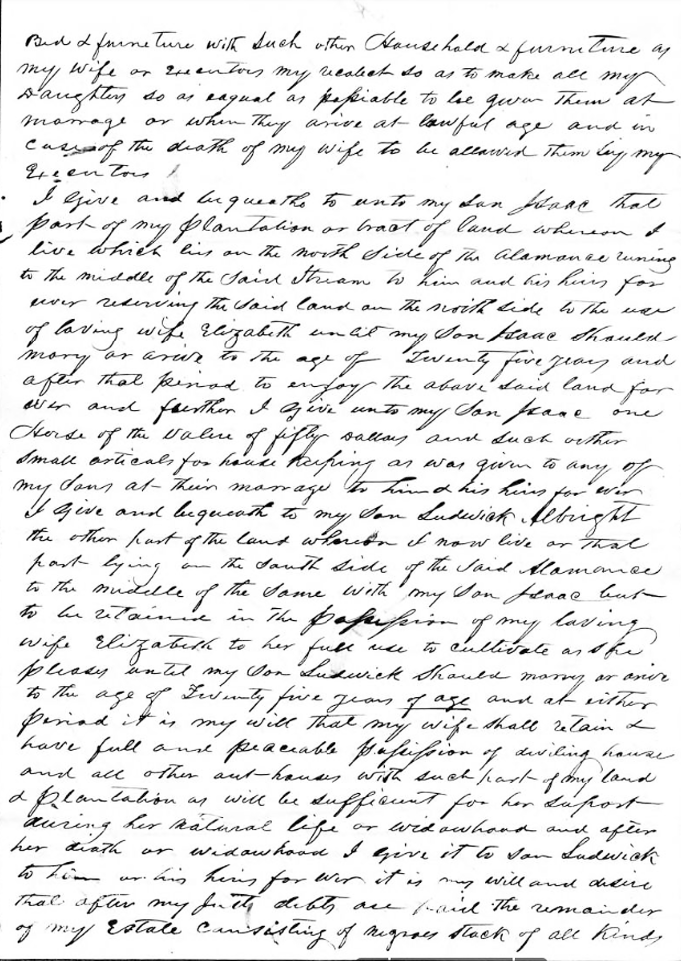 Bed & furneture with such other Household & furneture as
my wife or executors my recolect so as to make all my
Daughters so as eaqual as possiable to be given them at
marrage or when they arive at lawful age and in
case of the death of my wife to be allowed them by my
Executors
I Give and bequeathe to unto my son Isaac that
part of my plantation or tract of land whereon I
live which lies on the north side of the Alamance runing
to the middle of the said Stream to him and his hirs for
ever reserving the said land on the north side to the use
of loving wife Elizabeth until my Son Isaac should
mary or arive to the age of Twenty five years and
after that period to enjoy the above said land for
ever and further I Give unto my Son Isaac one
Horse of the value of fifty Dollars and such other
small articals for house keeping as was given to any of
my Sons at their marrage to him & his hirs for ever
I Give and bequeath to my Son Ludwick Albright
the other part of the land whereon I now live or that
part lying on the South side of the said Alamance
to the middle of the same with my Son Isaac but
to be retained in the possession of my loving
wife Elizabeth to her full use to cultivate as she
pleases until my Son Ludwick should marry or arive
to the age of Twenty five years of age and at either
period it is my will that my wife shall retain &
have full and peaceable possission of dwiling house
and all other out-houses with such part of my land
& plantation as will be sufficient for her suport
during her natural life or widowhood and after
her death or widowhood I give it to son Ludwick
to him or his hirs for ever it is my will and desire
that after my Just debts are paid the remainder
of my Estate consisting of negroes stock of all kinds